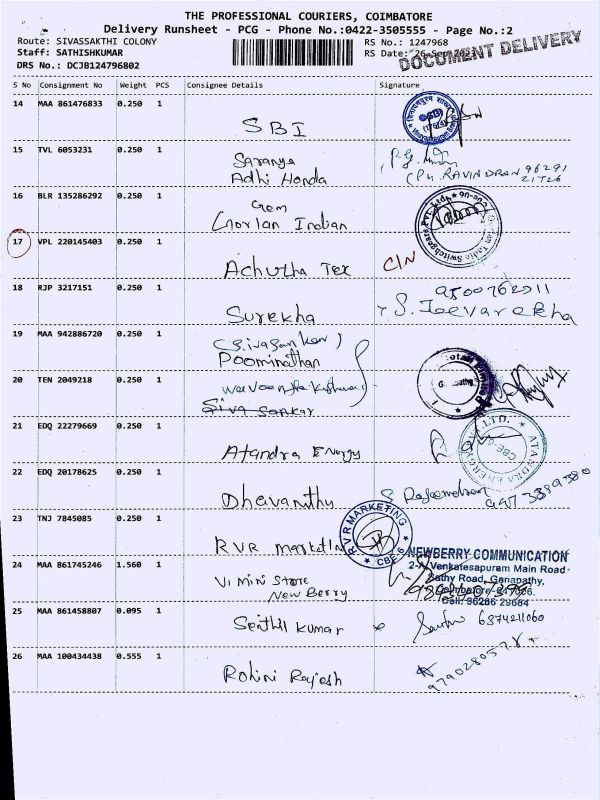 THE PROFESSIONAL COURIERS, COIMBATORE
Delivery Runsheet - PCG - Phone No.:0422-3505555 - Page No.:2
Route: SIVASSAKTHI COLONY
RS No.: 1247968
Staff: SATHISHKUMAR
RS Date: 26-Sep-2023
DOCUMENT DELIVERY
DRS No.: DCJB124796802
S No Consignment No Weight PCS Consignee Details Signature
14 MAA 861476833 0.250 1
SBI
15 TVL 6053231 0.250 1
Saranya
Adhi Honda
RAVINDRAN 96291
16 BLR 135286292 0.250 1
Gem
Gorlan Indian
17 VPL 220145403 0.250 1
Achutha Tex C/N
18 RJP 3217151 0.250 1
Surekha
S. Jeevarekha
19 MAA 942886720 0.250 1
(Sivasankar)
Poominathan
20 TEN 2049218 0.250 1
Siva Sankar
21 EDQ 22279669 0.250 1
Atandra Energy
ATANDRA ENERGY
22 EDQ 20178625 0.250 1
Dhavanthu
23 TNJ 7845085 0.250 1
RVR Marketing
RVR MARKETING
CBE-6
24 MAA 861745246 1.560 1
Vi Mini Store
New Berry
NEWBERRY COMMUNICATION
2-A, Venkatesapuram Main Road
Sathy Road, Ganapathy,
Coimbatore-641006.
Cell: 96286 29684
25 MAA 861458807 0.095 1
Senthil Kumar
6374211060
26 MAA 100434438 0.555 1
Rohini Rajesh